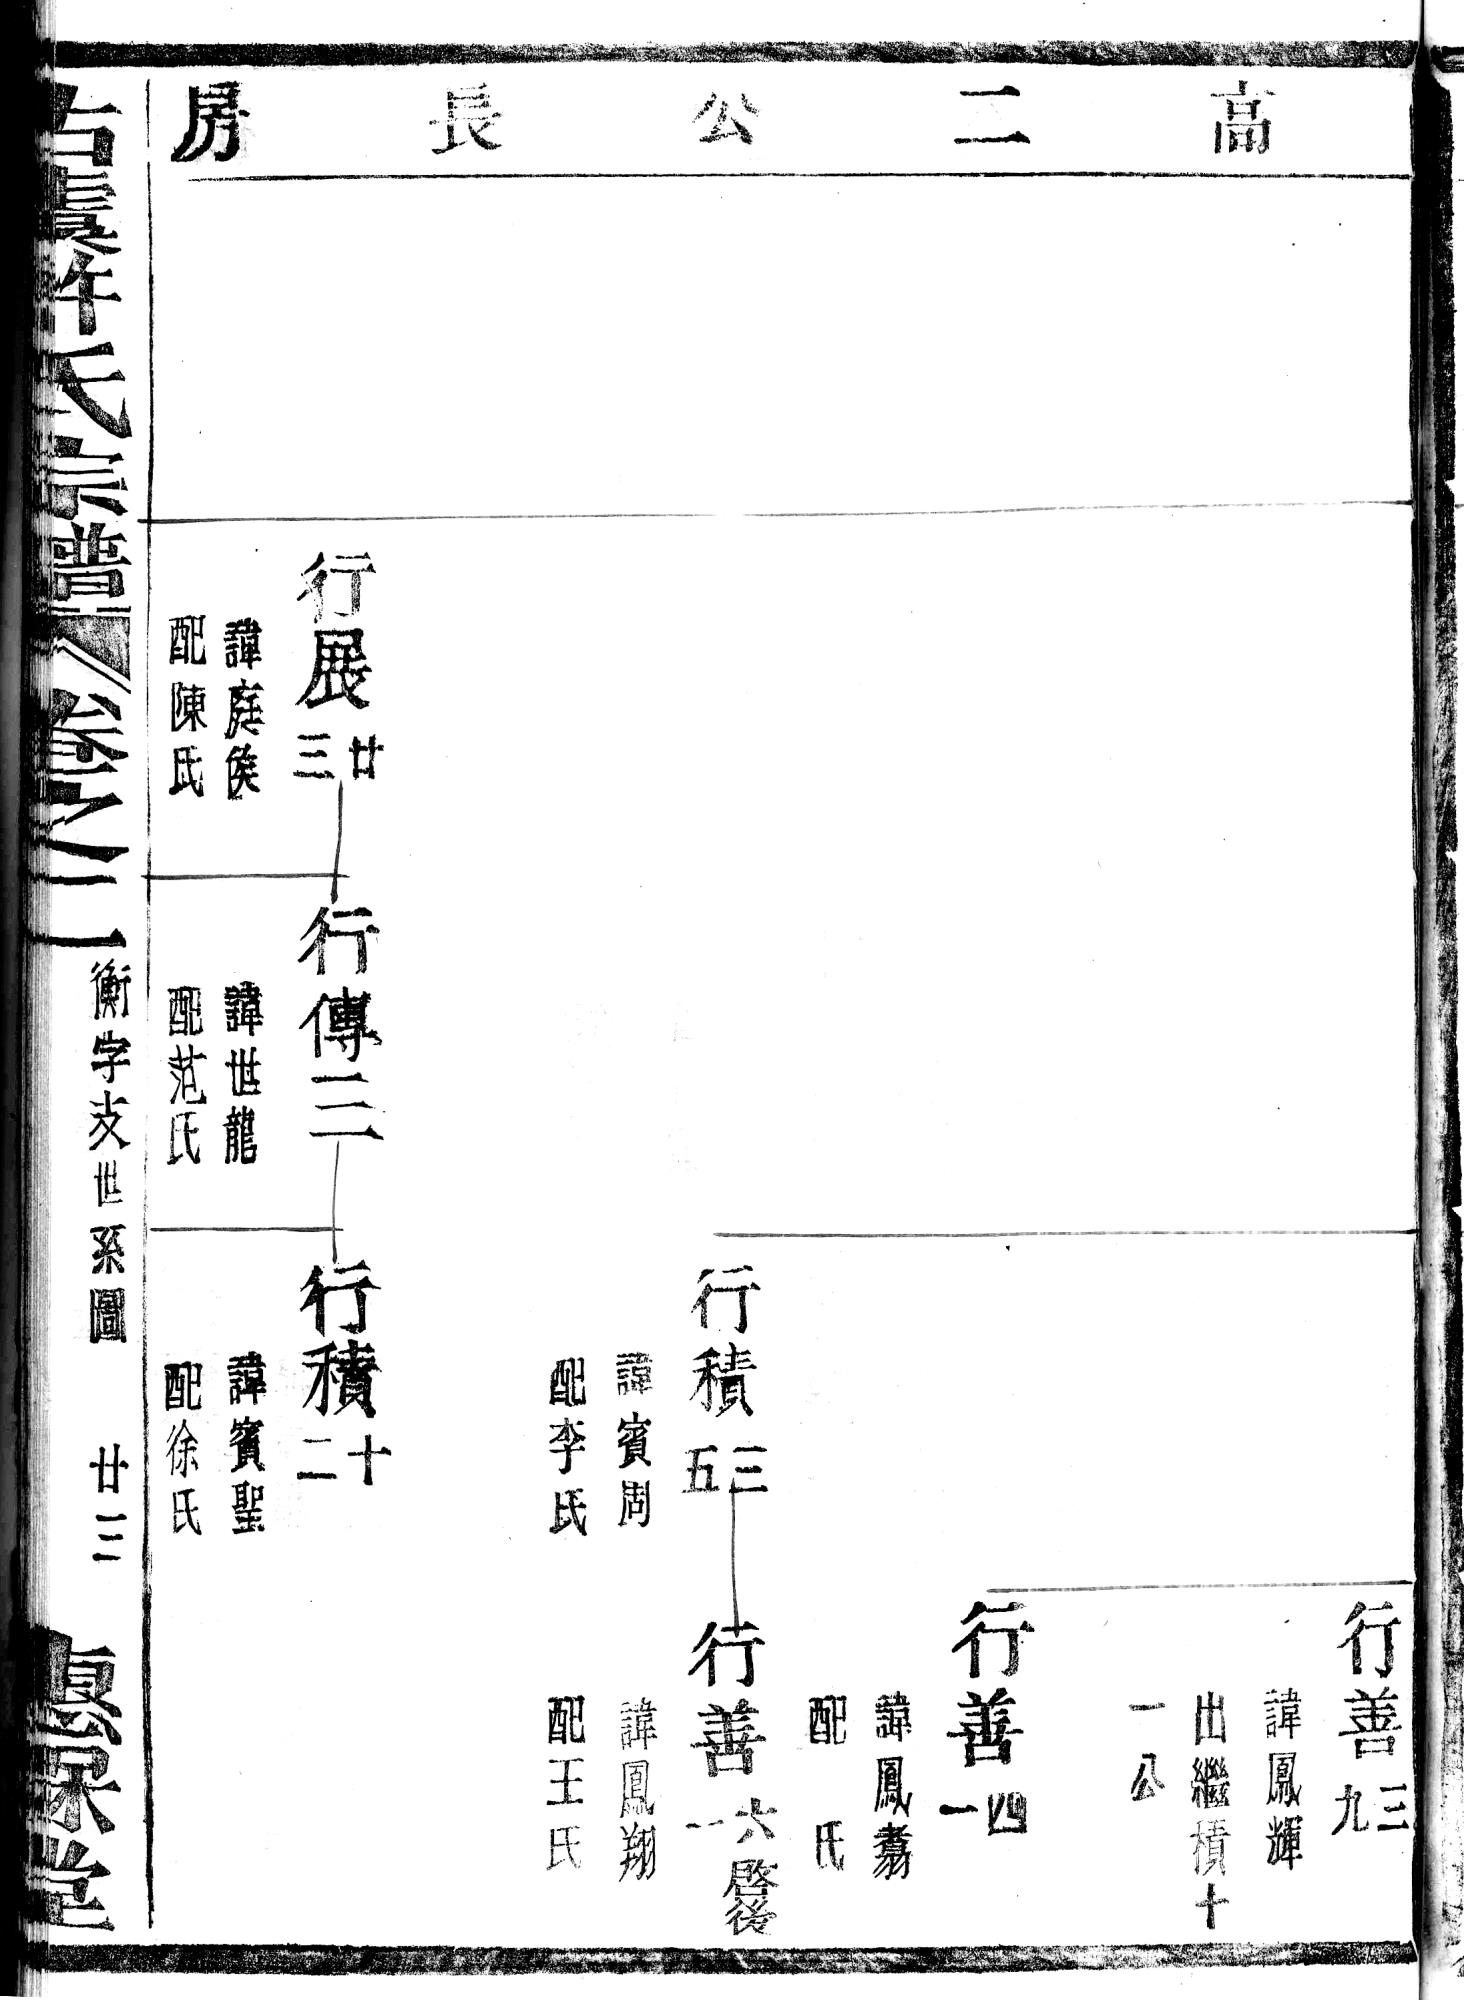 高二公長房
行展廿三
諱庭侯
配陳氏
行傳三
諱世龍
配范氏
行積三五
諱賓周
配李氏
行積十二
諱賓聖
配徐氏
行善三九
諱鳳輝
出繼積十
一公
行善四一
諱鳳翥
配 氏
行善六一啓後
諱鳳翔
配王氏
古虞許氏宗譜 卷之二
衡字支世系圖 廿三
堂